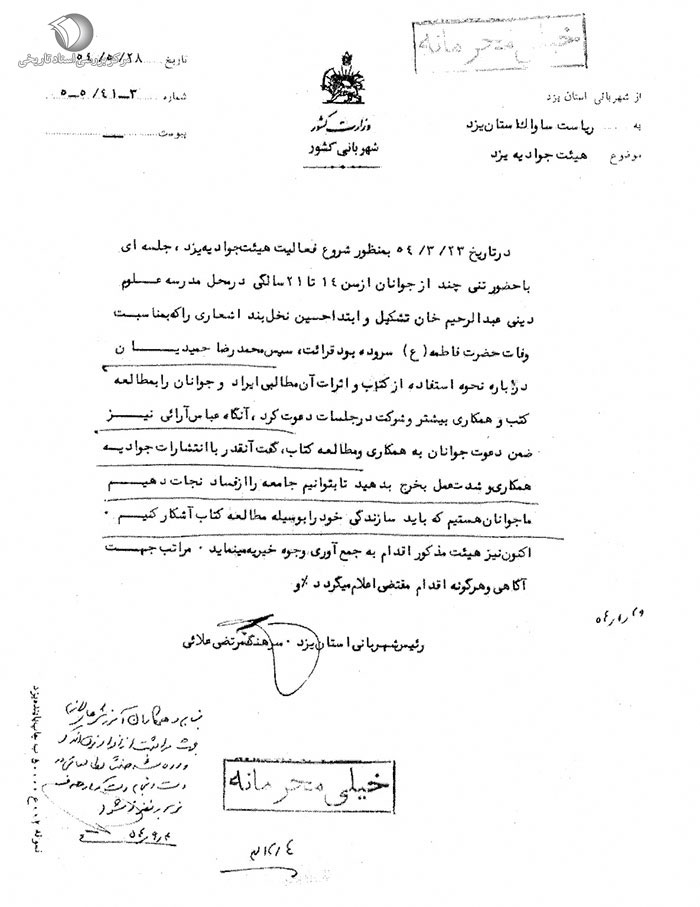 مرکز بررسی اسناد تاریخی
خیلی محرمانه
تاریخ ۵۴/۵/۲۸
شماره ۳-۵/۴۱-۵
پیوست
وزارت کشور
شهربانی کشور
از شهربانی استان یزد
به ریاست ساواک استان یزد
موضوع هیئت جوادیه یزد
در تاریخ ۵۴/۳/۲۳ بمنظور شروع فعالیت هیئت جوادیه یزد ، جلسه ای
با حضور تنی چند از جوانان از سن ۱۴ تا ۲۱ سالگی در محل مدرسه علوم
دینی عبدالرحیم خان تشکیل و ابتدا حسین نخل بند اشعاری را که بمناسبت
وفات حضرت فاطمه (ع) سروده بود قرائت، سپس محمد رضا حمیدیان
درباره نحوه استفاده از کتاب و اثرات آن مطالبی ایراد و جوانان را بمطالعه
کتب و همکاری بیشتر و شرکت در جلسات دعوت کرد ، آنگاه عباس آرائی نیز
ضمن دعوت جوانان به همکاری و مطالعه کتاب، گفت آنقدر با انتشارات جوادیه
همکاری و شدت عمل بخرج بدهید تا بتوانیم جامعه را از فساد نجات دهیم
ما جوانان هستیم که باید سازندگی خود را بوسیله مطالعه کتاب آشکار کنیم .
اکنون نیز هیئت مذکور اقدام به جمع آوری وجوه خیریه مینماید . مراتب جهت
آگاهی و هرگونه اقدام مقتضی اعلام میگردد ٪و
رئیس شهربانی استان یزد . سرهنگ مرتضی علائی
خیلی محرمانه